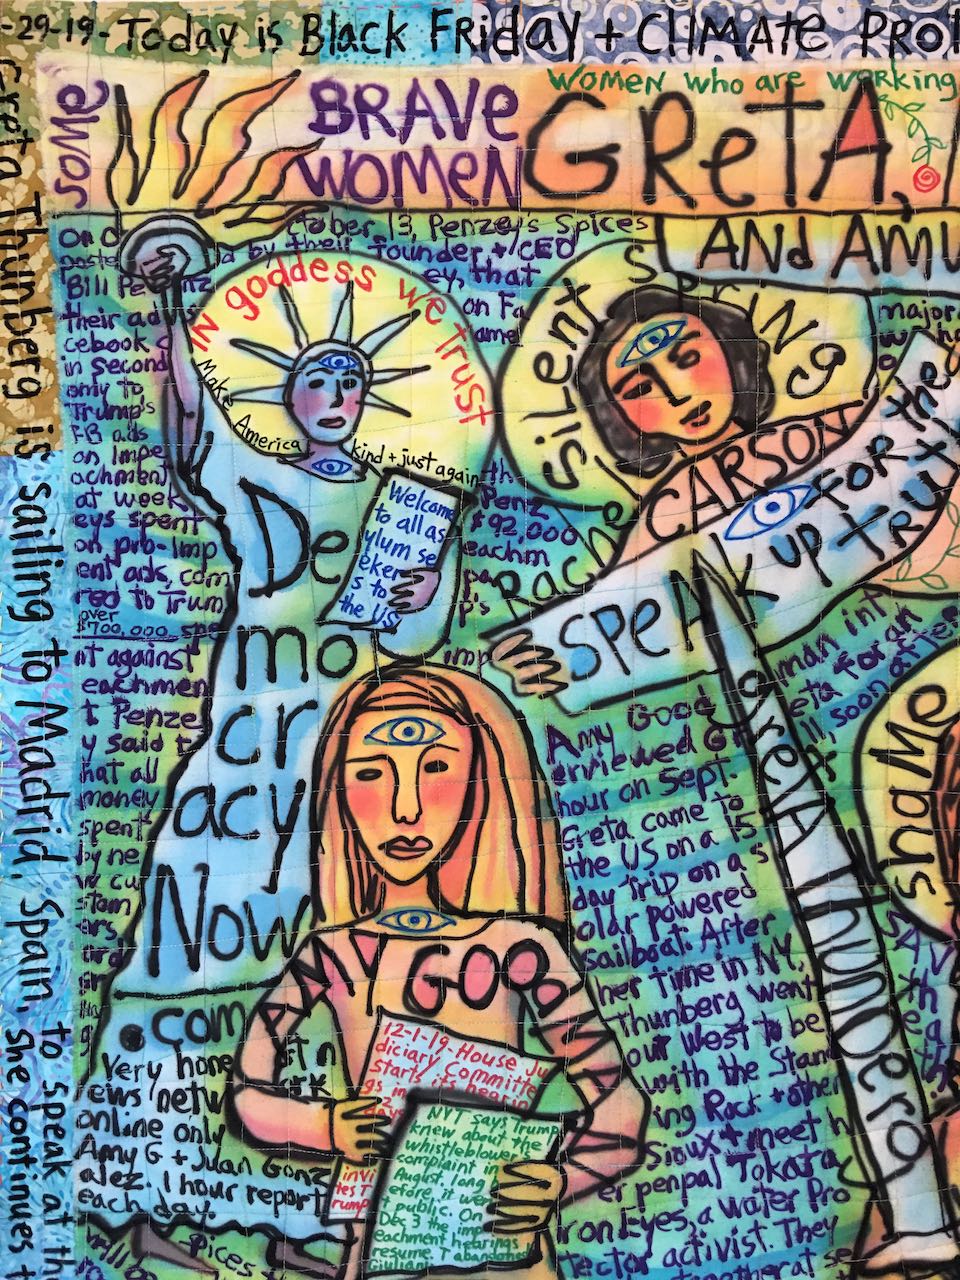 -29-19-Today is Black Friday + Climate Pro
Greta Thunberg is sailing to Madrid, Spain, to speak at th
She continues t
Some
BRAVE
WOMEN
Women who are working
GReTA,
AND AM
On O
ctober 13, Penzey's Spices
poste
d by their founder + CEO
Bill Pe
ey, that
their ad
on Fa
cebook
in second
only to
Trump's
FB ads
on Impe
achment
at week
eys spent
on pro-Imp
ent ads, com
red to Trum
over
$700,000 spe
nt against
eachmen
t Penze
y said t
hat all
money
spent
by ne
w cu
stom
ers
In goddess we trust
Make America kind + just again
Welcome
to all as
ylum se
eker
s to
the US
th
Penz
$92,000
eachm
p's
imp
De
mo
cr
acy
Now
.com
Very hone
st n
ews netw
online only
Amy G + Juan Gonz
alez. 1 hour report
each day.
Silent Spring
Rachel CARSON
major
SPEAK UP FOR the
TRUTH
Greta Thunberg
Amy Good
man int
erviewed Gr
eta for an
hour on Sept.
soon after
Greta came to
the US on a 15
day trip on a s
olar powered
sailboat. After
her time in NY,
Thunberg went
out West to be
with the Stand
ing Rock + other
Sioux + meet h
er penpal Tokata
Iron Eyes, a Water Pro
tector activist. They
together at
AMY GOODMAN
12-1-19 House Ju
diciary Committe
starts its hearin
gs in
2
days
invi
tes T
rump
NYT says Trump
knew about the
whistleblower's
complaint in
August, long b
efore it wen
t public. On
Dec 3 the imp
eachment hearings
resume. T abandons
Giuliani
shaMe
pices